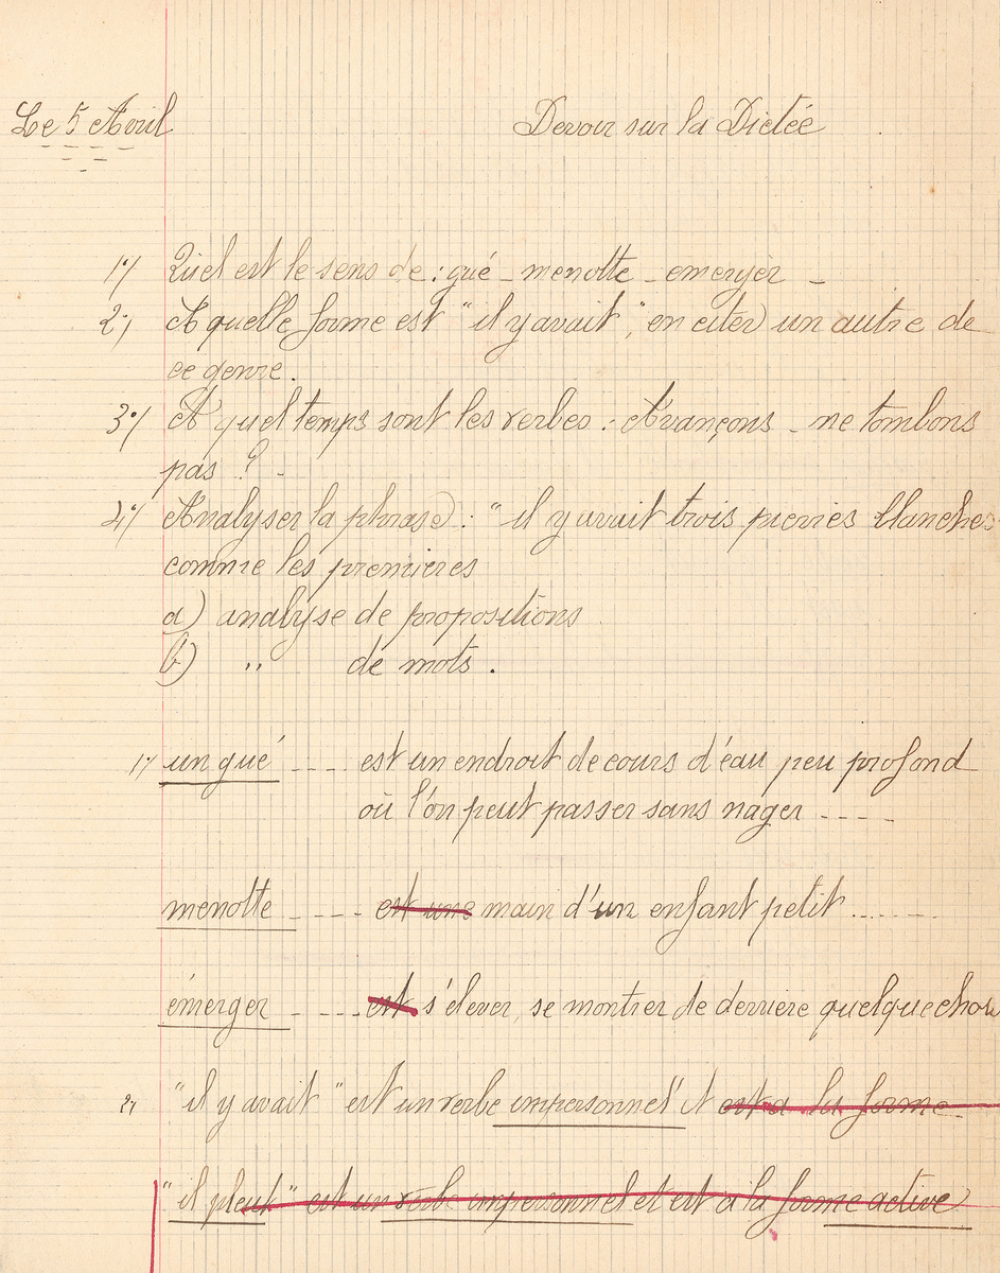 Le 5 Avril
Devoir sur la Dictée
1°/ Quel est le sens de : gué - menotte - emerger -
2°/ A quelle forme est "il y avait", en citer un autre de
ce genre.
3°/ A quel temps sont les verbes : Avançons - ne tombons
pas ? -
4°/ Analyser la phrase : "il y avait trois pierres blanches
comme les premieres
a) analyse de propositions
b) " de mots.
1°/ un gué ---- est un endroit de cours d'eau peu profond
où l'on peut passer sans nager ----
menotte ---- est une main d'un enfant petit .......
émerger ---- est s'élever, se montrer de derriere quelque chose
2°/ "il y avait" est un verbe impersonnel et est a la forme
"il pleut" est un verbe impersonnel et est à la forme active